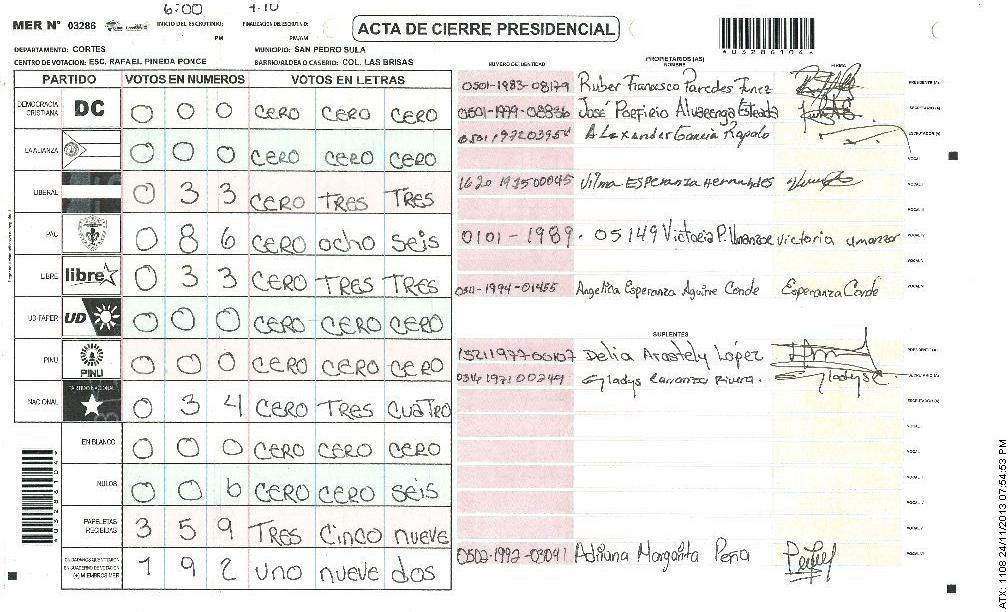 6:00 4:10
MER N° 03286 INICIO DEL ESCRUTINIO: FINALIZACION DEL ESCRUTINIO:
PM PM/AM
ACTA DE CIERRE PRESIDENCIAL
DEPARTAMENTO: CORTES MUNICIPIO: SAN PEDRO SULA
CENTRO DE VOTACION: ESC. RAFAEL PINEDA PONCE BARRIO/ALDEA O CASERIO: COL. LAS BRISAS
PARTIDO VOTOS EN NUMEROS VOTOS EN LETRAS
DEMOCRACIA CRISTIANA DC 0 0 0 CERO CERO CERO
LA ALIANZA 0 0 0 CERO CERO CERO
LIBERAL 0 3 3 CERO TRES TRES
PAC 0 8 6 CERO ocho seis
LIBRE libre 0 3 3 CERO TRES TRES
UD-FAPER UD 0 0 0 CERO CERO CERO
PINU PINU 0 0 0 CERO CERO CERO
NACIONAL PARTIDO NACIONAL 0 3 4 CERO TRES CUATRO
EN BLANCO 0 0 0 CERO CERO CERO
NULOS 0 0 6 CERO CERO seis
PAPELETAS RECIBIDAS 3 5 9 TRES Cinco nueve
1 9 2 uno nueve dos
NUMERO DE IDENTIDAD PROPIETARIOS (AS) NOMBRE FIRMA
0501-1983-08179 Ruber Francisco Paredes Funez PRESIDENTE (A)
0501-1999-08836 José Porfirio Alvarenga Estrada SECRETARIO (A)
0501199203954 Alexander Garcia Rapalo ESCRUTADOR (A)
VOCAL I
1620 1975 00045 Vilma ESPERANZA Hernandes VOCAL II
VOCAL III
0101-1989-05149 Victoria P. Umanzor victoria umanzor VOCAL IV
VOCAL V
1994-01455 Angelica Esperanza Aguirre Conde Esperanza Conde VOCAL VI
SUPLENTES
1521197700107 Delia Arastely López PRESIDENTE (A)
0346197100249 Gladys Carranza Rivera. Gladys C. SECRETARIO (A)
ESCRUTADOR (A)
VOCAL I
VOCAL II
VOCAL III
VOCAL IV
VOCAL V
0502-1992-03041 Adilana Margarita Peña VOCAL VI
ATX: 1108 24/11/2013 07:54:53 PM